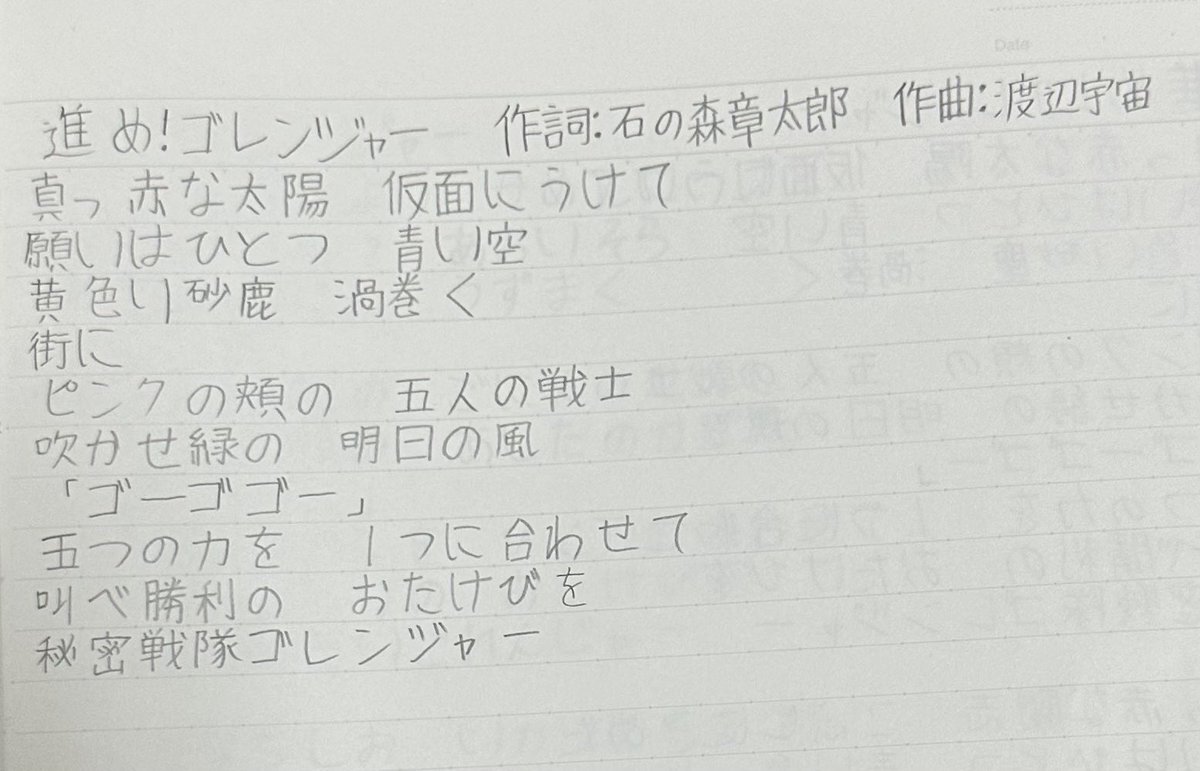 Date
進め!ゴレンジャー 作詞:石の森章太郎 作曲:渡辺宇宙
真っ赤な太陽 仮面にうけて
願いはひとつ 青い空
黄色い砂鹿 渦巻く
街に
ピンクの頬の 五人の戦士
吹かせ緑の 明日の風
「ゴーゴゴー」
五つの力を 1つに合わせて
叫べ勝利の おたけびを
秘密戦隊ゴレンジャー